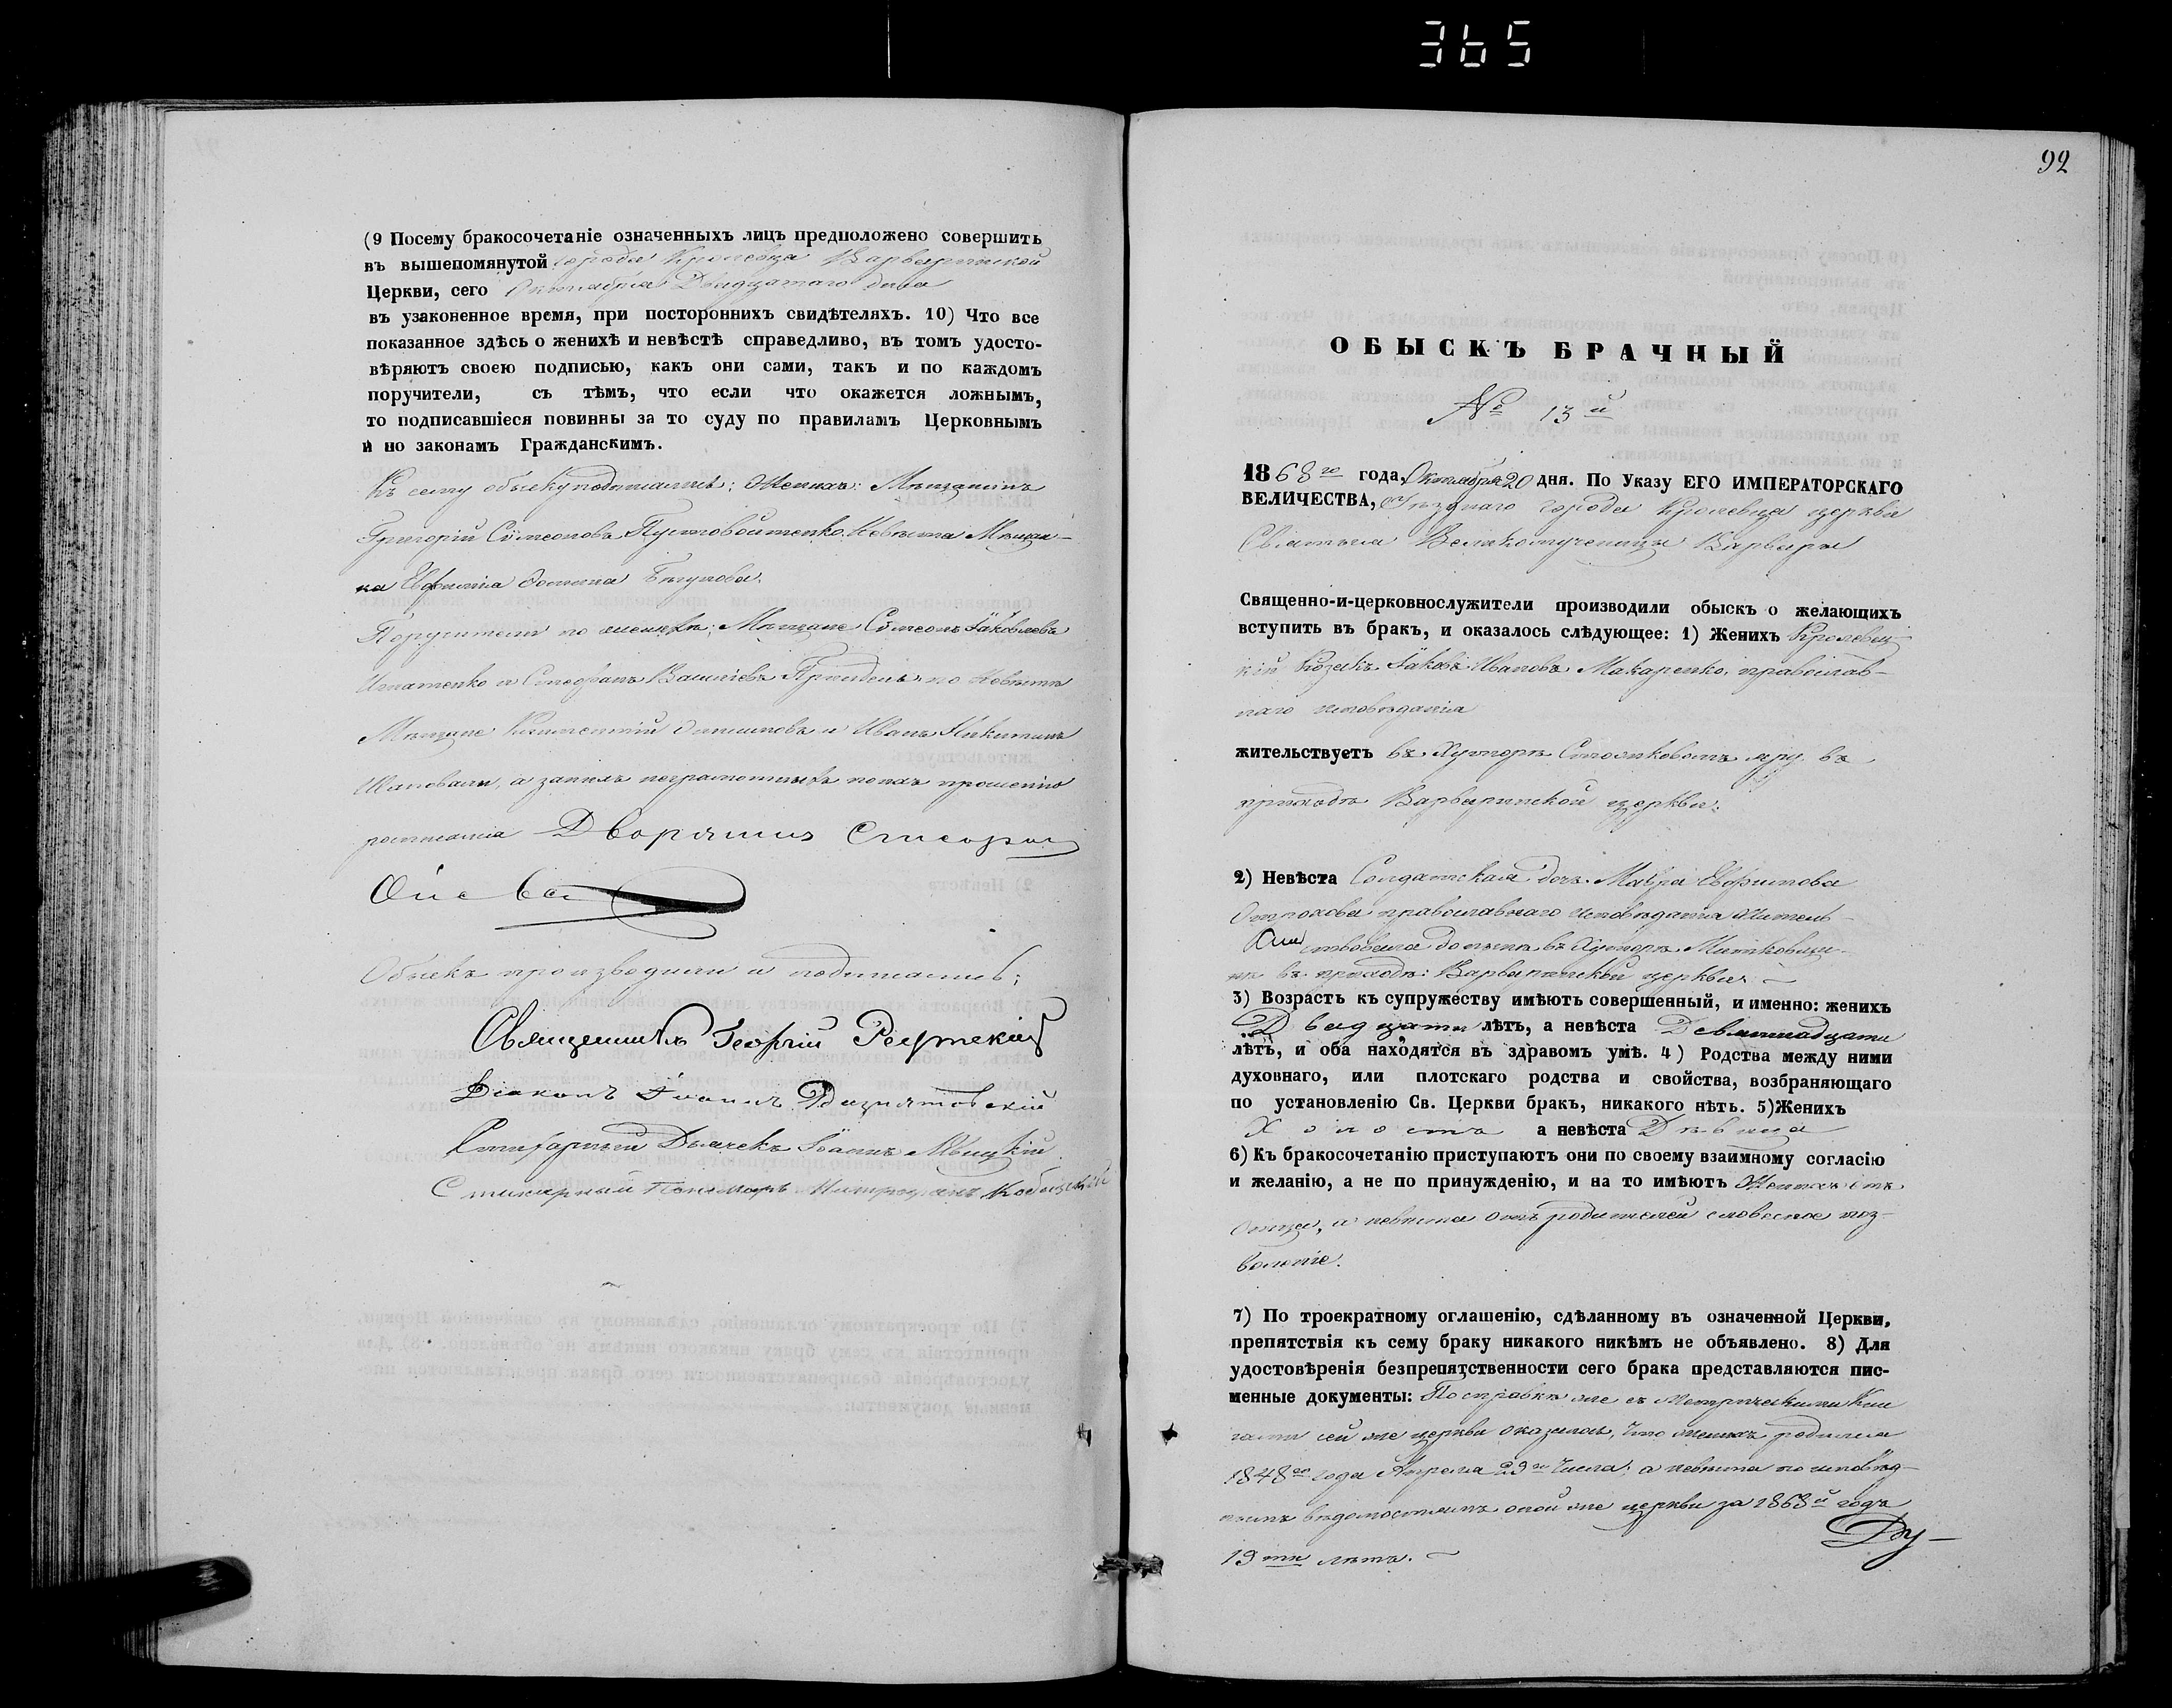 365
(9 Посему бракосочетаніе означенныхъ лицъ предположено совершить
въ вышепомянутой города Кролевца Варваринской
Церкви, сего Октября Двадцатаго дня
въ узаконенное время, при постороннихъ свидѣтеляхъ. 10) Что все
показанное здѣсь о женихѣ и невѣстѣ справедливо, въ томъ удосто-
вѣряютъ своею подписью, какъ они сами, такъ и по каждомъ
поручители, съ тѣмъ, что если что окажется ложнымъ,
то подписавшіеся повинны за то суду по правиламъ Церковнымъ
и по законамъ Гражданскимъ.
Къ сему обыску подписались: Женихъ: Мѣщанинъ
Григорій Сѵмеоновъ Пустовойтенко, Невѣста Мѣщан-
ка Евфимія Бѣгунова.
Поручители по женихѣ: Мѣщане Сѵмеонъ Іаковлевъ
Игнатенко и Стефанъ Василіевъ по Невѣстѣ
Мѣщане и Иванъ Никитинъ
Шаповалы, а за нихъ неграмотныхъ по ихъ прошенію
росписался Дворянинъ
Обыскъ производили и подписались:
Священникъ Георгій
Діаконъ
Стихарный Дьячекъ Іоаннъ
Стихарный Пономарь Митрофанъ
92
ОБЫСКЪ БРАЧНЫЙ
№ 13й
1868го года, Октября 20 дня. По Указу ЕГО ИМПЕРАТОРСКАГО
ВЕЛИЧЕСТВА, Уѣзднаго города Кролевца церкви
Святыя Великомученицы Варвары
Священно-и-церковнослужители производили обыскъ о желающихъ
вступить въ бракъ, и оказалось слѣдующее: 1) Женихъ Кролевец-
кій Козакъ Іаковъ Ивановъ Макаренко, православ-
наго исповѣданія
жительствуетъ въ Хуторѣ въ
приходѣ Варваринской церкви.
2) Невѣста Солдатская дочь Мавра Евфимова
православнаго исповѣданія житель-
ствовала донынѣ въ Хуторѣ
въ приходѣ: Варваринской церкви
3) Возрастъ къ супружеству имѣютъ совершенный, и именно: женихъ
Двадцати лѣтъ, а невѣста Девятнадцати
лѣтъ, и оба находятся въ здравомъ умѣ. 4) Родства между ними
духовнаго, или плотскаго родства и свойства, возбраняющаго
по установленію Св. Церкви бракъ, никакого нѣтъ. 5)Женихъ
Холостъ а невѣста Дѣвица
6) Къ бракосочетанію приступаютъ они по своему взаимному согласію
и желанію, а не по принужденію, и на то имѣютъ Женихъ отъ
Отца, а невѣста отъ родителей словесное поз-
воленіе.
7) По троекратному оглашенію, сдѣланному въ означенной Церкви,
препятствія къ сему браку никакого никѣмъ не объявлено. 8) Для
удостовѣренія безпрепятственности сего брака представляются пис-
менные документы: По справкѣ же съ Метрическими Кни
гами сей же церкви оказалось, что женихъ родился
1848го года Апрѣля 29го числа; а невѣста по исповѣд-
нымъ вѣдомостямъ оной же церкви за 1868й годъ
19ти лѣтъ.
Ду-